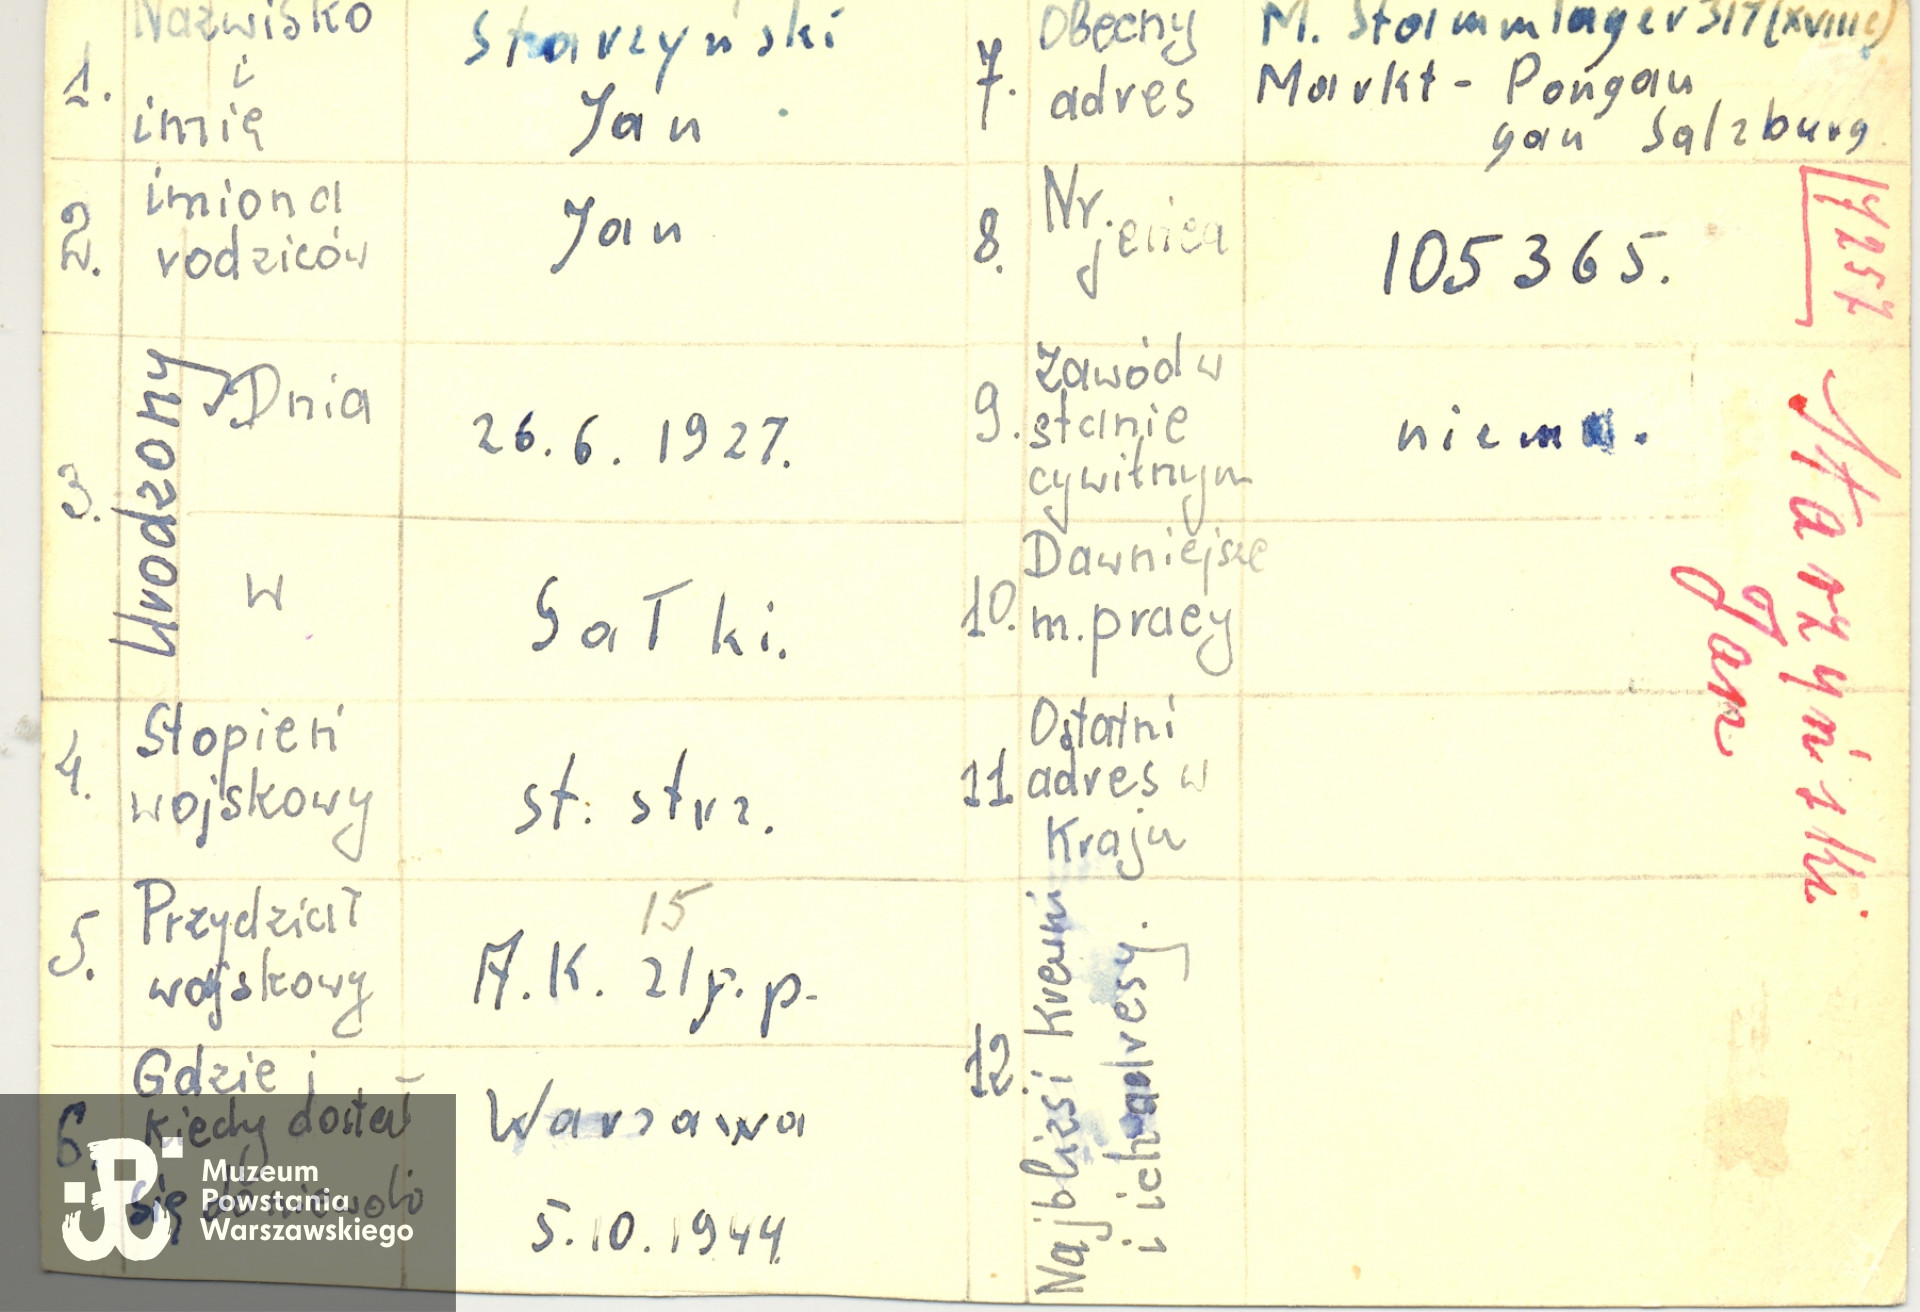 1.
Nazwisko
i
imię
Starzyński
Jan
2.
imiona
rodziców
Jan
3.
Urodzony
Dnia
26.6.1927.
w
Sałki.
4.
Stopień
wojskowy
st. strz.
5.
Przydział
wojskowy
15
A.K. 21p.p.
6.
Gdzie i
kiedy dostał
się do niewoli
Warszawa
5.10.1944
7.
Obecny
adres
M. Stammlager 317 (XVIIIC)
Markt - Pongau
gau Salzburg.
8.
Nr.
jeńca
105365.
9.
Zawód w
stanie
cywilnym
niema.
10.
Dawniejsze
m. pracy
11
Ostatni
adres w
Kraju
12.
Najbliżsi krewni
i ich adresy.
Starzyński
Jan
Muzeum
Powstania
Warszawskiego